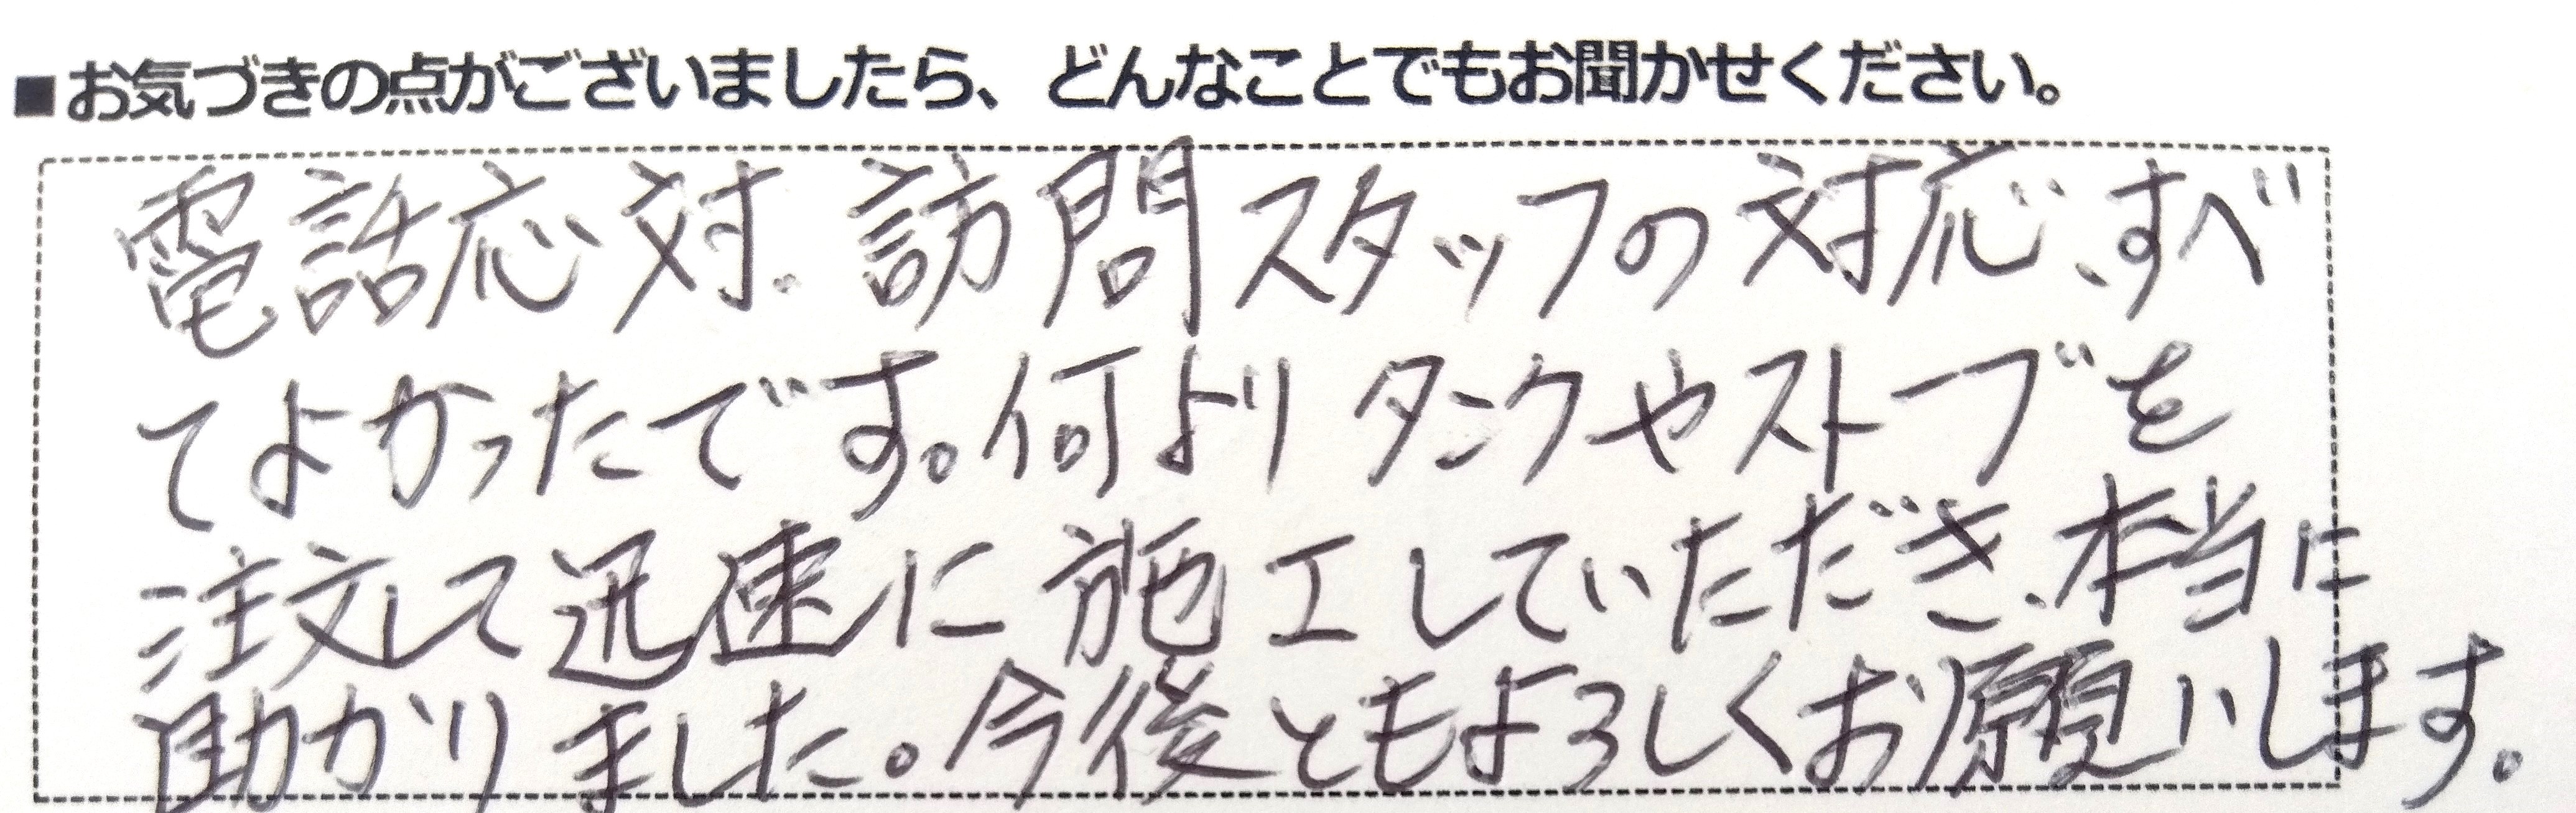 ■お気づきの点がございましたら、どんなことでもお聞かせください。
電話応対、訪問スタッフの対応、すべ
てよかったです。何よりタンクやストーブを
注文して迅速に施工していただき、本当に
助かりました。今後ともよろしくお願いします。